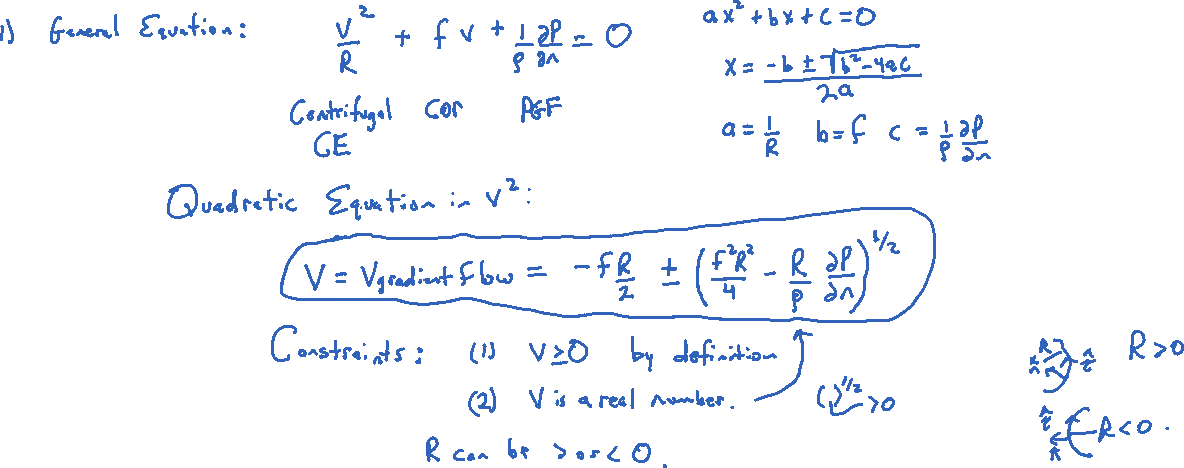 1) General Equation: V²/R + fV + 1/ρ ∂P/∂n = 0
Centrifugal COR PGF
CE
ax² + bx + c = 0
x = (-b ± √(b²-4ac))/2a
a = 1/R b = f c = 1/ρ ∂P/∂n
Quadratic Equation in V²:
V = Vgradient flow = -fR/2 ± (f²R²/4 - R/ρ ∂P/∂n)^1/2
Constraints: (1) V ≥ 0 by definition
(2) V is a real number. ( )^1/2 > 0
R can be > or < 0.
R R > 0
R < 0.